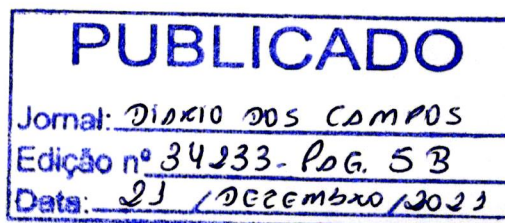 PUBLICADO
Jornal: DIARIO DOS CAMPOS
Edição nº 34133 - PAG. 5B
Data: 21 / DEZEMBRO / 2021